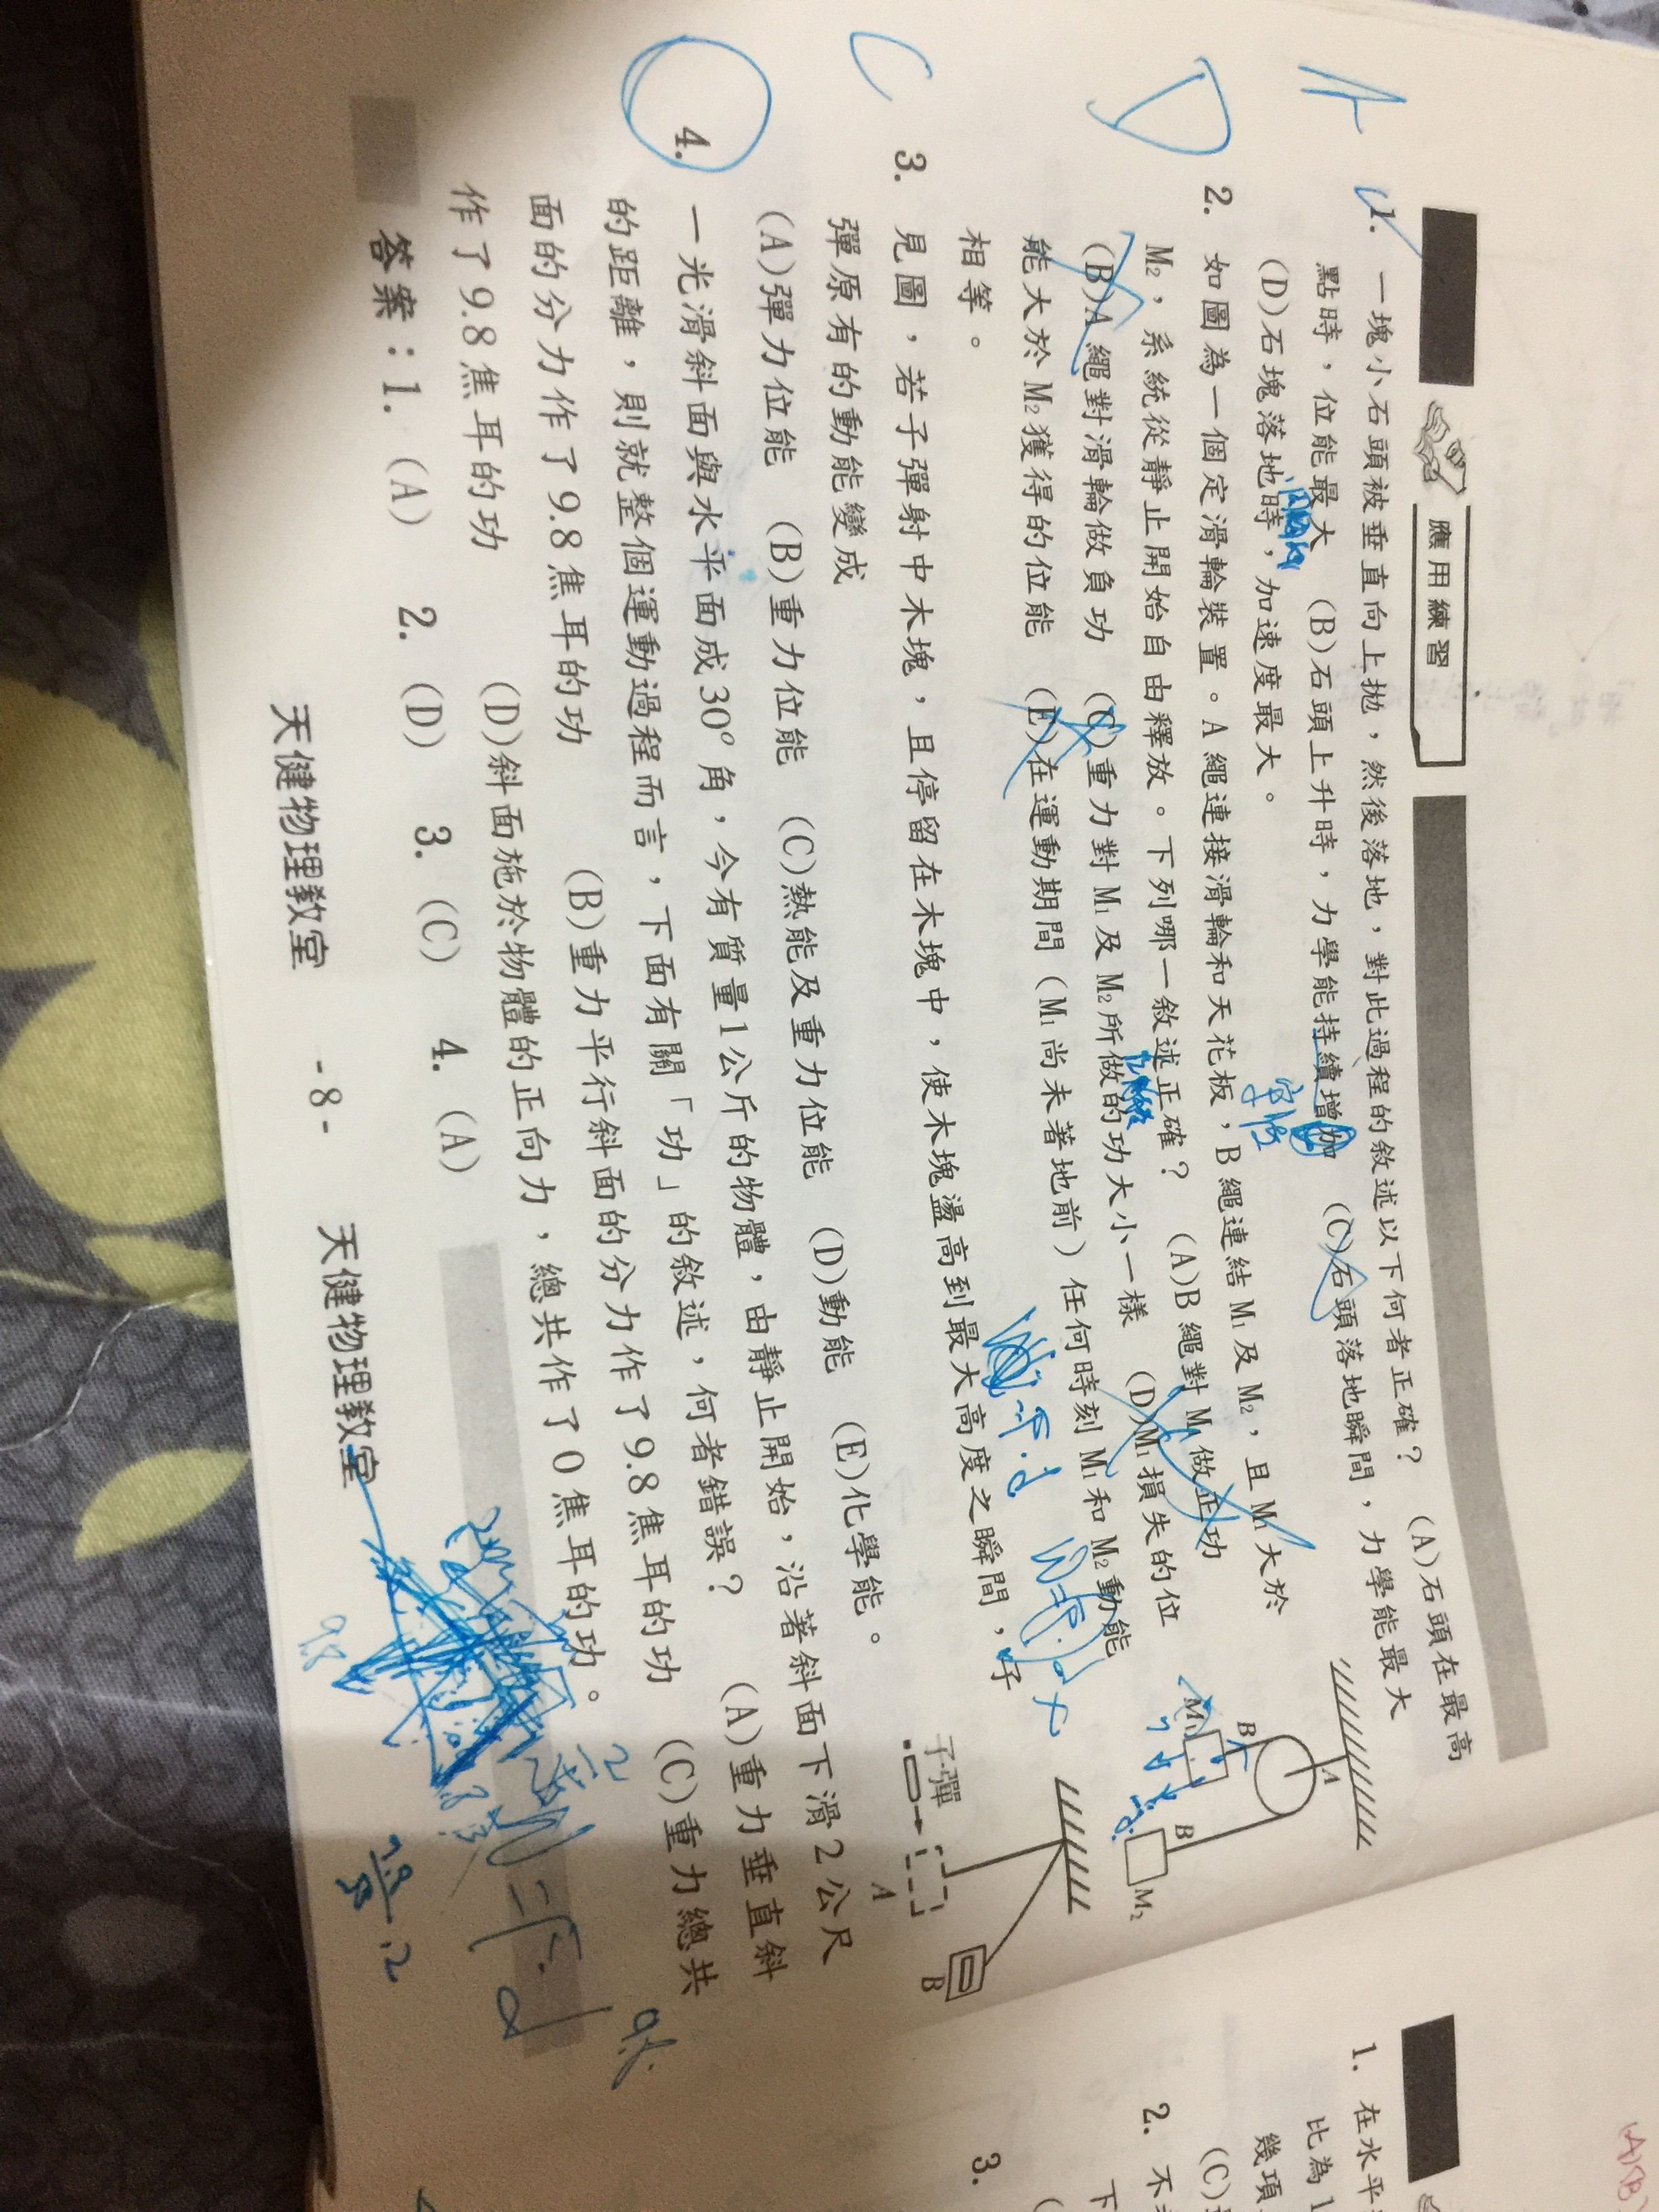 應用練習
1. 一塊小石頭被垂直向上拋，然後落地，對此過程的敘述以下何者正確？ (A)石頭在最高
點時，位能最大 (B)石頭上升時，力學能持續增加 (C)石頭落地瞬間，力學能最大
(D)石塊落地時，加速度最大。
2. 如圖為一個定滑輪裝置。A 繩連接滑輪和天花板，B 繩連結 M₁ 及 M₂，且 M₁ 大於
M₂，系統從靜止開始自由釋放。下列哪一敘述正確？ (A)B 繩對 M₁ 做正功
(B)A 繩對滑輪做負功 (C)重力對 M₁ 及 M₂ 所做的功大小一樣 (D)M₁ 損失的位
能大於 M₂ 獲得的位能 (E)在運動期間（M₁ 尚未著地前）任何時刻 M₁ 和 M₂ 動能
相等。
A
B
B
M₁
M₂
3. 見圖，若子彈射中木塊，且停留在木塊中，使木塊盪高到最大高度之瞬間，子
彈原有的動能變成
(A)彈力位能 (B)重力位能 (C)熱能及重力位能 (D)動能 (E)化學能。
子彈
A
B
4. 一光滑斜面與水平面成 30° 角，今有質量 1 公斤的物體，由靜止開始，沿著斜面下滑 2 公尺
的距離，則就整個運動過程而言，下面有關「功」的敘述，何者錯誤？ (A)重力垂直斜
面的分力作了 9.8 焦耳的功 (B)重力平行斜面的分力作了 9.8 焦耳的功 (C)重力總共
作了 9.8 焦耳的功 (D)斜面施於物體的正向力，總共作了 0 焦耳的功。
答案：1. (A) 2. (D) 3. (C) 4. (A)
天健物理教室 -8- 天健物理教室
A
D
C
W=F.d
9.8
1. 在水平
比為1
2. 不
幾項
(C)
下
3.
(A)(B)